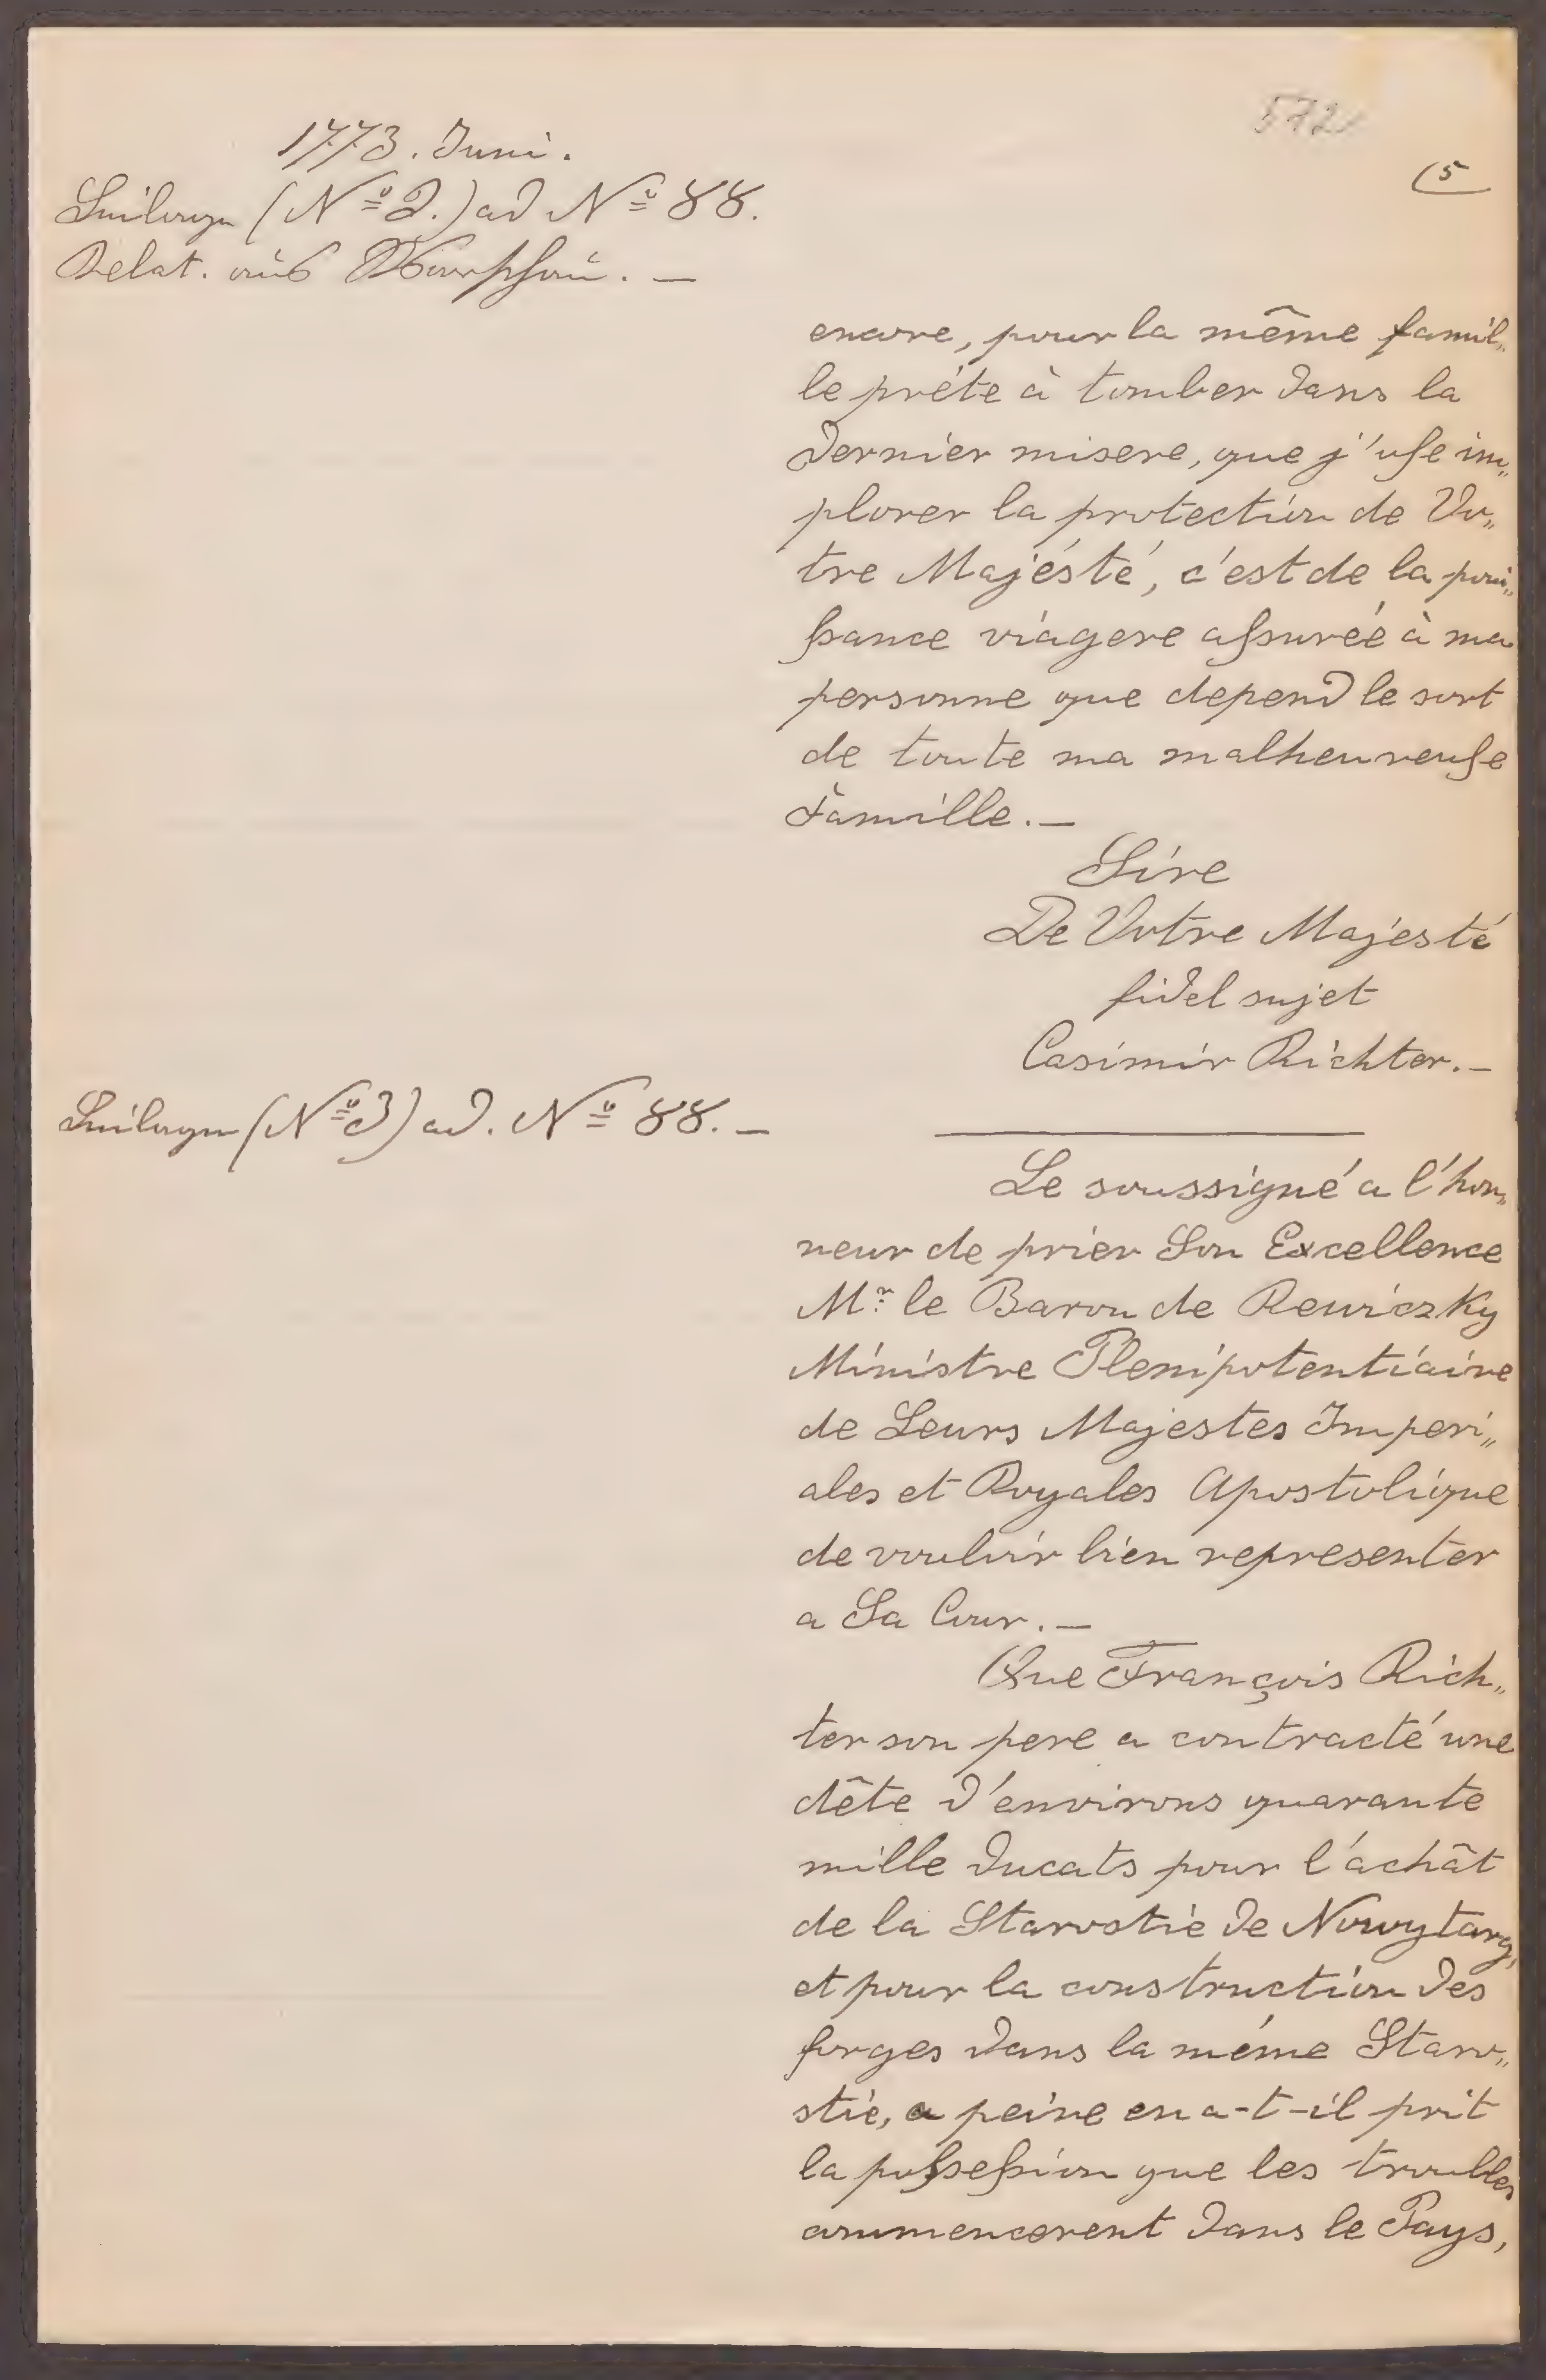 572
(5
1773. Juni.
Beilage (No 2.) ad No 88.
Relat. aus Warschau. —
encore, pour la même famil„
le prête à tomber dans la
dernier misere, que j'use im„
plorer la protection de Vo„
tre Majésté, c'est de la poui„
ssance viagere assurée à ma
personne que depend le sort
de toute ma malheureuse
Famille. —
Sire
De Votre Majesté
fidel sujet
Casimir Richter. —
Beilage (No 3) ad. No 88. —
Le soussigné a l'hon„
neur de prier Son Excellence
Mr. le Baron de Rewiczky
Ministre Plenipotentiaire
de Leurs Majestes Imperi„
ales et Royales Apostolique
de vouloir bien representer
a Sa Cour. —
Que François Rich„
ter son pere a contracté une
dête d'environs quarante
mille ducats pour l'achât
de la Starostie de Nowytarg,
et pour la construction des
forges dans la même Staro„
stie, a peine en a-t-il prit
la possession que les troubles
commencerent dans le Pays,